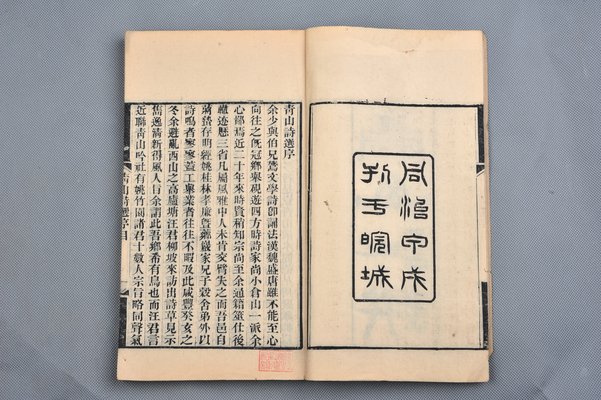 同治甲戌
刊于皖城
青山詩選序
余少與伯兄鷺文學詩卽誦法漢魏盛唐雖不能至心
向往之旣冠鄉舉視遊四方時詩家尚小倉山一派余
心鄙焉近二十年來時賢稍知宗尚至余通籍筮仕後
轍迹歷三省凡屬風雅中人未肯交臂失之而吾邑自
存明經姚桂林孝廉曁巖家兄子穀舍弟外以
詩鳴者寥寥蓋工舉業者往往不暇及此咸豐癸亥之
冬余避亂西山之高廬塘汪君柳坡來訪出詩草見示
雋逸清新得風人旨余謂此吾鄉希有鳥也而汪君言
近聯青山吟社有姚竹岡諸君十數人宗旨略同聲氣
青山詩選序目